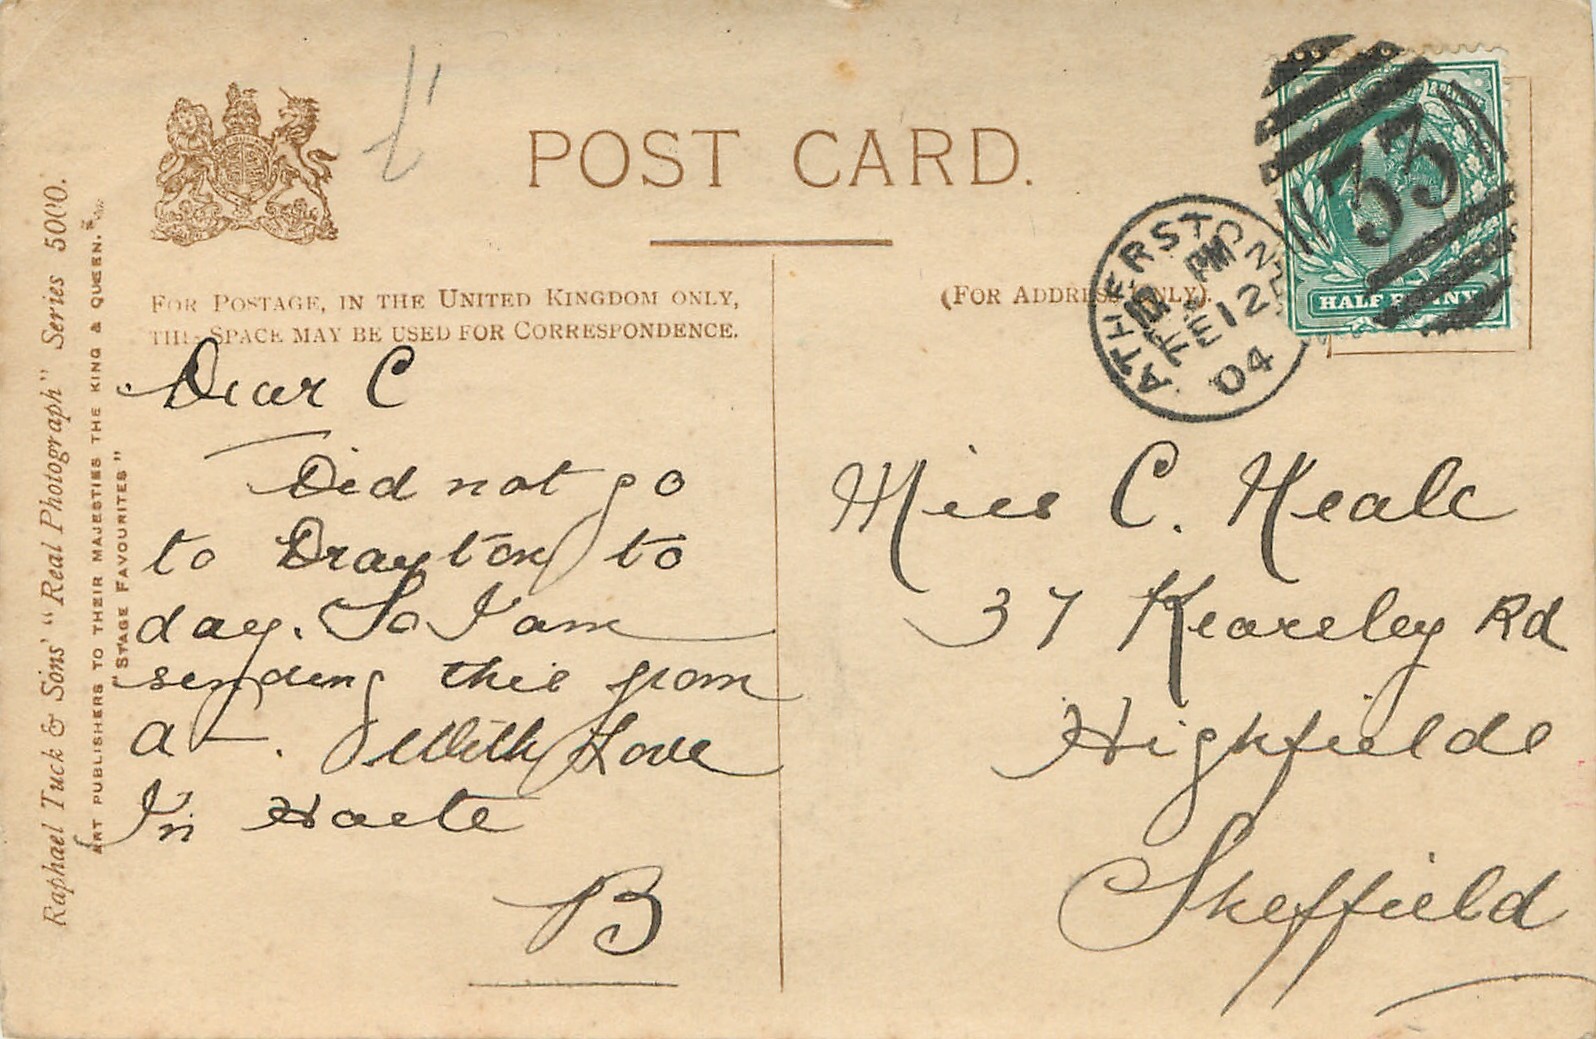 POST CARD.
FOR POSTAGE, IN THE UNITED KINGDOM ONLY,
THIS SPACE MAY BE USED FOR CORRESPONDENCE.
(FOR ADDRESS ONLY).
Raphael Tuck & Sons' "Real Photograph" Series 5000.
ART PUBLISHERS TO THEIR MAJESTIES THE KING & QUEEN.
"STAGE FAVOURITES"
Dear C
Did not go
to Drayton to
day. So I am
sending this from
A—. With Love
In Haste
B
Miss C. Neale
37 Kearsley Rd
Highfields
Sheffield
ATHERSTONE
PM
FE 12
04
33
& REVENUE
HALF PENNY